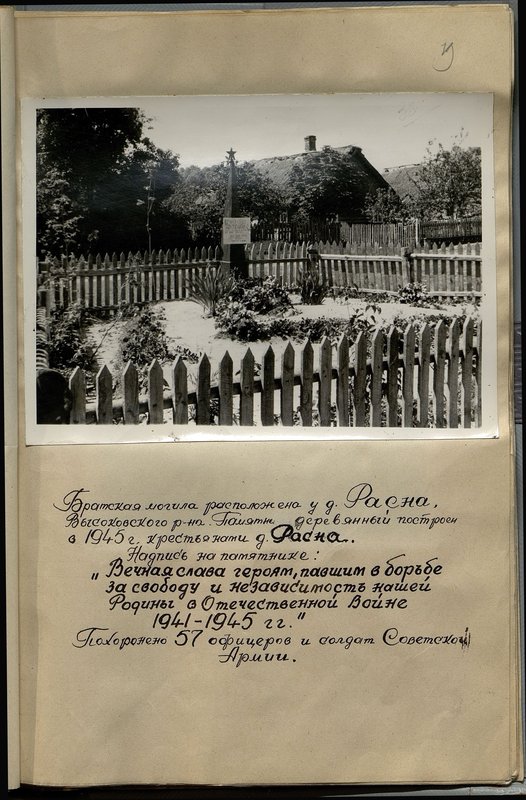 19
Братская могила расположена у д. Расна,
Высоковского р-на. Памятн. деревянный построен
в 1945 г. крестьянами д. Расна.
Надпись на памятнике:
„Вечная слава героям, павшим в борьбе
за свободу и независимость нашей
Родины в Отечественной Войне
1941-1945 гг."
Похоронено 57 офицеров и солдат Советской
Армии.